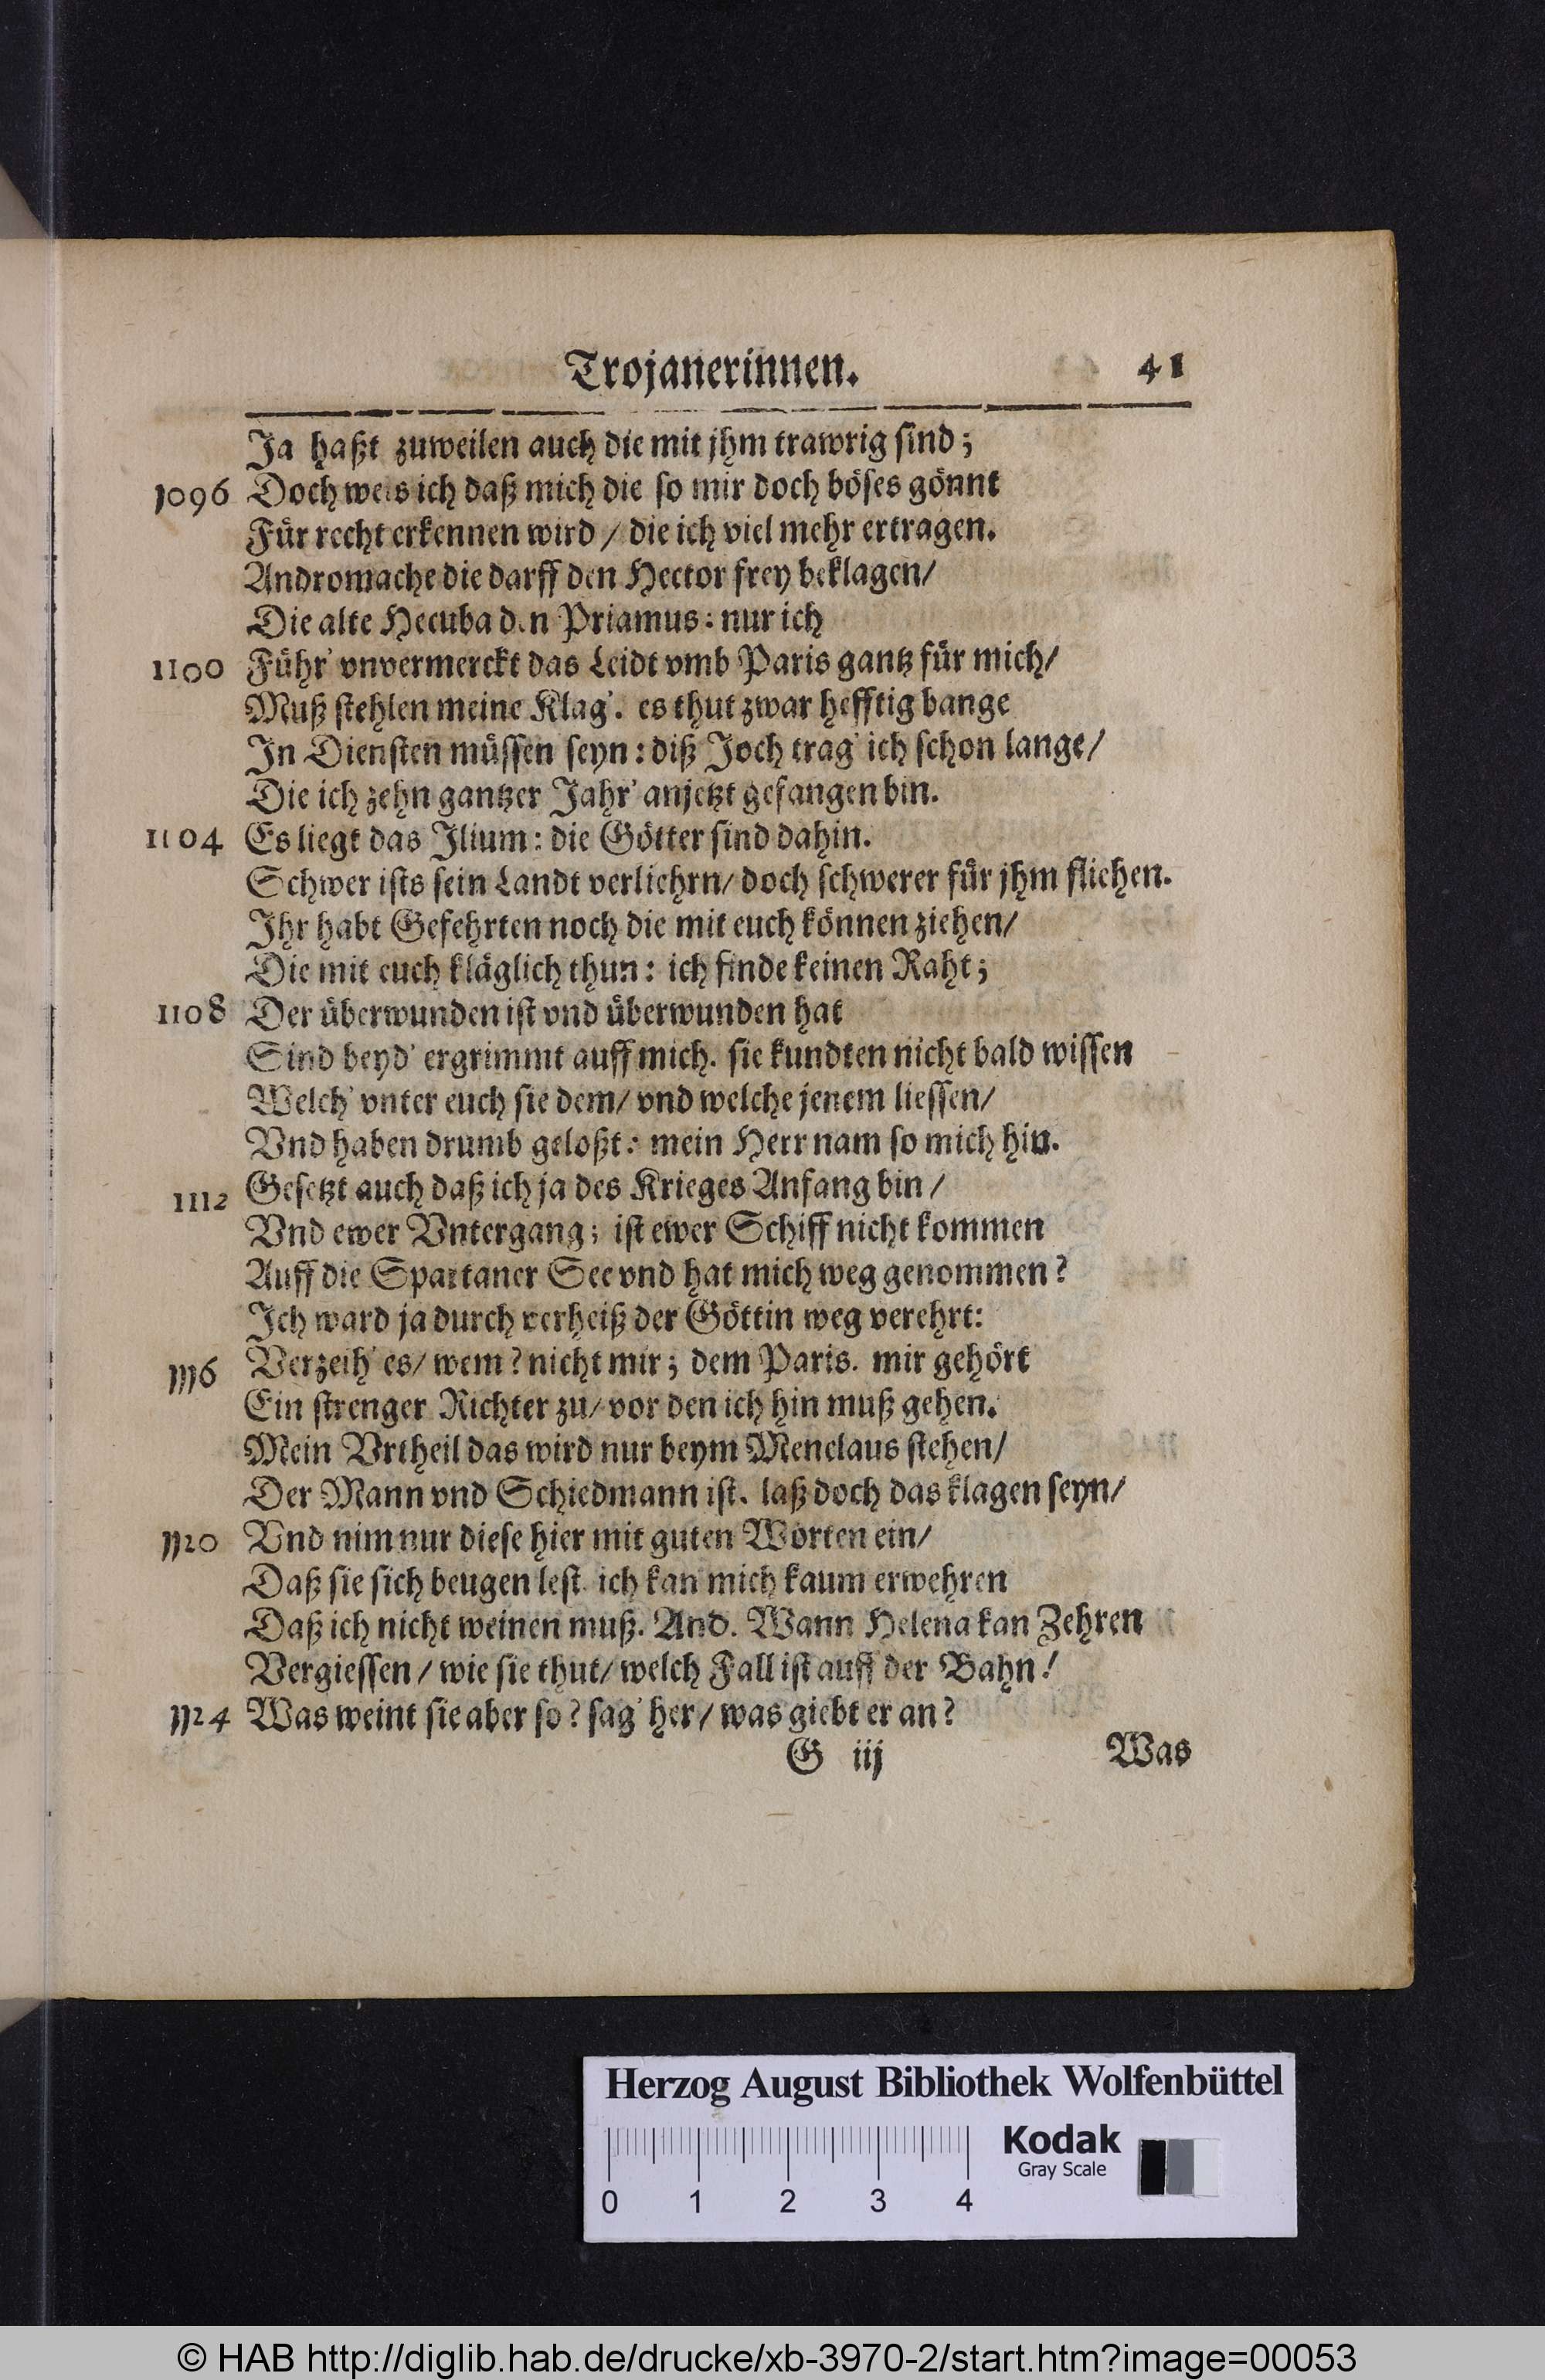 Trojanerinnen. 41
Ja haßt zuweilen auch die mit jhm trawrig sind;
1096 Doch weis ich daß mich die so mir doch böses gönnt
Für recht erkennen wird / die ich viel mehr ertragen.
Andromache die darff den Hector frey beklagen/
Die alte Hecuba den Priamus: nur ich
1100 Führ' vnvermerckt das Leidt vmb Paris gantz für mich/
Muß stehlen meine Klag'. es thut zwar hefftig bange
In Diensten müssen seyn: diß Joch trag' ich schon lange/
Die ich zehn gantzer Jahr' anjetzt gefangen bin.
1104 Es liegt das Ilium: die Götter sind dahin.
Schwer ists sein Landt verliehrn/ doch schwerer für jhm fliehen.
Ihr habt Gefehrten noch die mit euch können ziehen/
Die mit euch kläglich thun: ich finde keinen Raht;
1108 Der überwunden ist vnd überwunden hat
Sind beyd' ergrimmt auff mich. sie kundten nicht bald wissen
Welch' vnter euch sie dem/ vnd welche jenem liessen/
Vnd haben drumb geloßt: mein Herr nam so mich hin.
1112 Gesetzt auch daß ich ja des Krieges Anfang bin /
Vnd ewer Vntergang; ist ewer Schiff nicht kommen
Auff die Spartaner See vnd hat mich weg genommen?
Ich ward ja durch verheiß der Göttin weg verehrt:
1116 Verzeih' es/ wem? nicht mir; dem Paris. mir gehört
Ein strenger Richter zu/ vor den ich hin muß gehen.
Mein Vrtheil das wird nur beym Menelaus stehen/
Der Mann vnd Schiedmann ist. laß doch das klagen seyn/
1120 Vnd nim nur diese hier mit guten Worten ein/
Daß sie sich beugen lest. ich kan mich kaum erwehren
Daß ich nicht weinen muß. And. Wann Helena kan Zehren
Vergiessen / wie sie thut/ welch Fall ist auff der Bahn!
1124 Was weint sie aber so? sag' her/ was giebt er an?
G iij Was
Herzog August Bibliothek Wolfenbüttel
Kodak
Gray Scale
0 1 2 3 4
© HAB http://diglib.hab.de/drucke/xb-3970-2/start.htm?image=00053